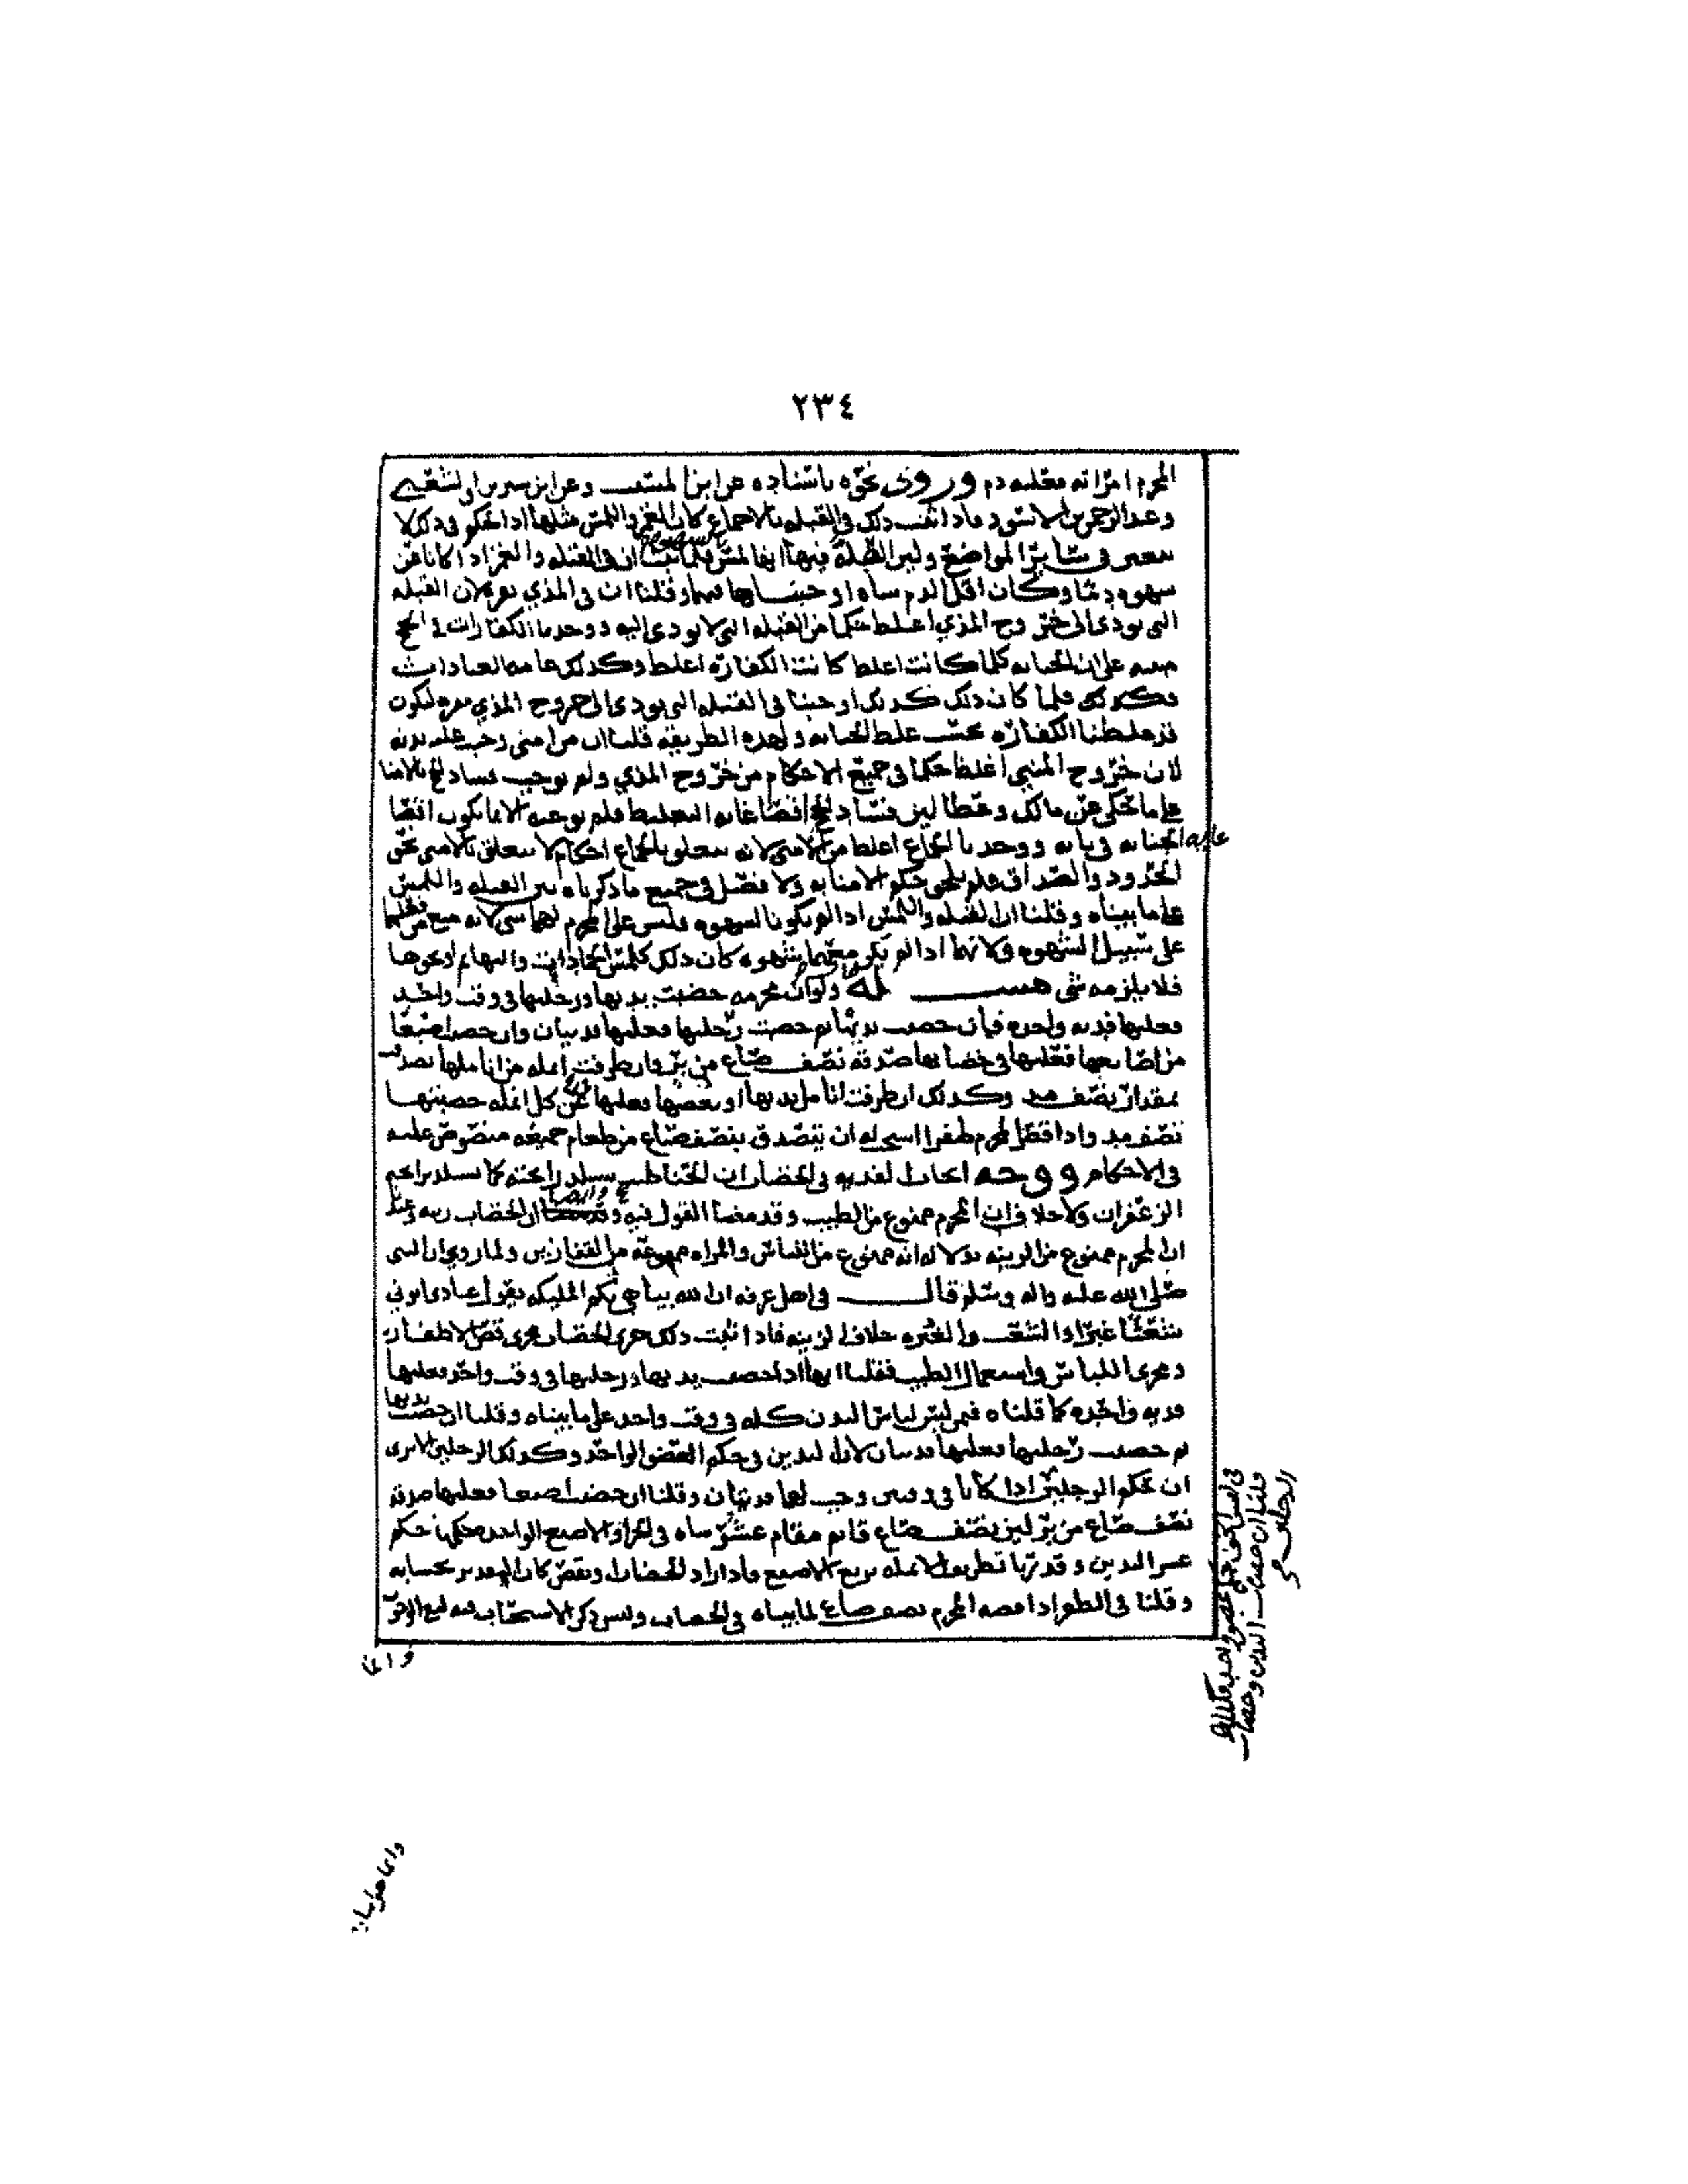 ٢٣٤
المحرم امراته فعليه دم وروى نحوه باسناده عن ابن المسيب وعن ابن سيرين والشعبي
وعبد الرحمن بن الاسود فاذا ثبت ذلك في القبله بالاجماع كان الغمز واللمس مثلها اذ الحكم في ذلك لا
في سائر المواضع وليس القبلة فيها ان في القبله والغمز اذا كانا عن
شهوه دما وكان اقل الدم شاه اوجبناها فيهما وقلنا ان في المذي بقره لان القبله
التي تودي الى خروج المذي اغلظ حكما من القبله التي لا تودي اليه ووجدنا الكفارات في الحج
مبنيه على ان الجنايه كلما كانت اغلظ كانت الكفاره اغلظ وكذلك عامه العبادات
فلما كان ذلك كذلك اوجبنا في القبله التي تودي الى خروج المذي بقره لتكون
قد غلظنا الكفاره بحسب غلظ الجنايه ولهذه الطريقه قلنا ان من امنى وجب عليه بدنه
لان خروج المني اغلظ حكما في جميع الاحكام من خروج المذي ولم نوجب فساد الحج بالامنا
على ما حكي عن مالك وعطا ليس فساد الحج اقصا غايه التغليظ فلم نوجبه الا بما يكون اقصا
الجنايه في بابه ووجدنا الجماع اغلظ من الامنى لانه يتعلق بالجماع احكام لا تتعلق بالامنى نحو
الحدود والصداق فلم يلحق حكم الامنا به ولا فصل في جميع ما ذكرناه بين القبله واللمس
على ما بيناه وقلنا ان القبله واللمس اذا لم يكونا لشهوه فليس على المحرم لهما شي لانه منع من فعلهما
على سبيل الشهوه ولانهما اذا لم يكن معهما شهوه كان ذلك كلمس الجمادات والبهايم ونحوها
فلا يلزمه شي مسـ ـله ولو ان محرمه خضبت يديها ورجليها في وقت واحد
فعليها فديه واحده فان خضبت يديها ثم خضبت رجليها فعليها فديتان وان خضبت اصبعا
من اصابعها فعليها في خضابها صدقه نصف صاع من بر وان طرفت انمله من اناملها تصدقت
بمقدار نصف مد وكذلك ان طرفت انامل يديها او بعضها فعليها عن كل انمله خضبتها
نصف مد واذا قص المحرم ظفرا استحب له ان يتصدق بنصف صاع من طعام جميعه منصوص عليه
في الاحكام ووجه ايجاب الفديه في الخضاب ان الحنا طيب يستلذ رائحته كما يستلذ رائحه
الزعفران ولا خلاف ان المحرم ممنوع من الطيب وقد مضا القول فيه ان الخضاب زينه وعندنا
ان المحرم ممنوع من الزينه بدلاله انه ممنوع من اللباس والمراه ممنوعه من القفازين ولما روي ان النبي
صلى الله عليه واله وسلم قال في اهل عرفه ان الله يباهي بكم المليكه يقول عبادي اتوني
شعثا غبرا والشعث والغبره خلاف الزينه فاذا ثبت ذلك جرى الخضاب مجرى قص الاظفار
ومجرى اللباس واستعمال الطيب فقلنا انها اذا خضبت يديها ورجليها في وقت واحد فعليها
فديه واحده كما قلناه فيمن لبس لباس البدن كله في وقت واحد على ما بيناه وقلنا ان خضبت يديها
ثم خضبت رجليها فعليها فديتان لان اليدين في حكم العضو الواحد وكذلك الرجلين الا ترى
ان حكم الرجلين اذا كانا في وقتين وجب لهما فديتان وقلنا ان خضبت اصبعا فعليها صدقه
نصف صاع من بر ليس نصف صاع قائم مقام عشر شاه في الجزا والاصبع الواحده حكمها حكم
عشر اليدين وقدرنا تطريف الانمله بربع الاصبع فاذا زاد الخضاب ونقص كان التقدير بحسابه
وقلنا في الظفر اذا قصه المحرم نصف صاع لما بيناه في الخضاب وليس ذكر الاستحباب فيه
وانما